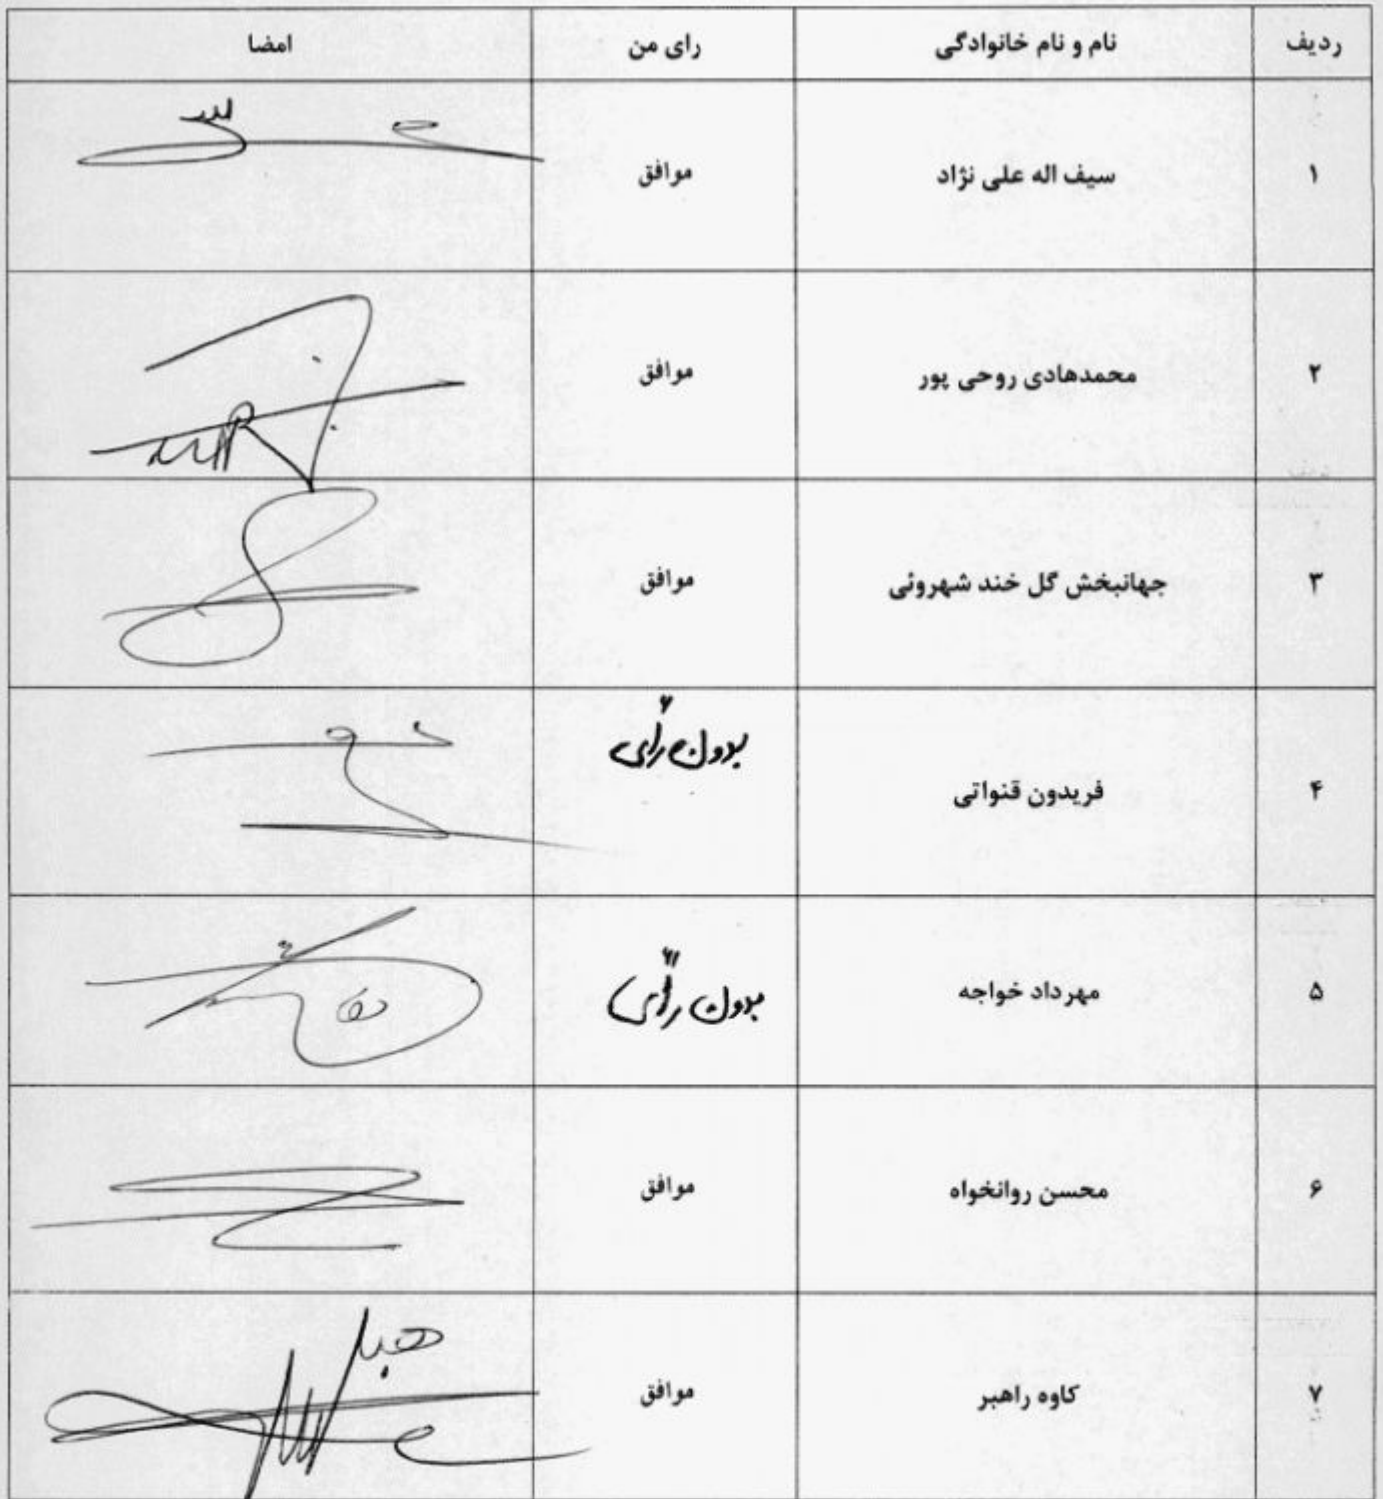 ردیف نام و نام خانوادگی رای من امضا
۱ سیف اله علی نژاد موافق
۲ محمدهادی روحی پور موافق
۳ جهانبخش گل خند شهروئی موافق
۴ فریدون قنواتی بدون رأی
۵ مهرداد خواجه بدون رأی
۶ محسن روانخواه موافق
۷ کاوه راهبر موافق